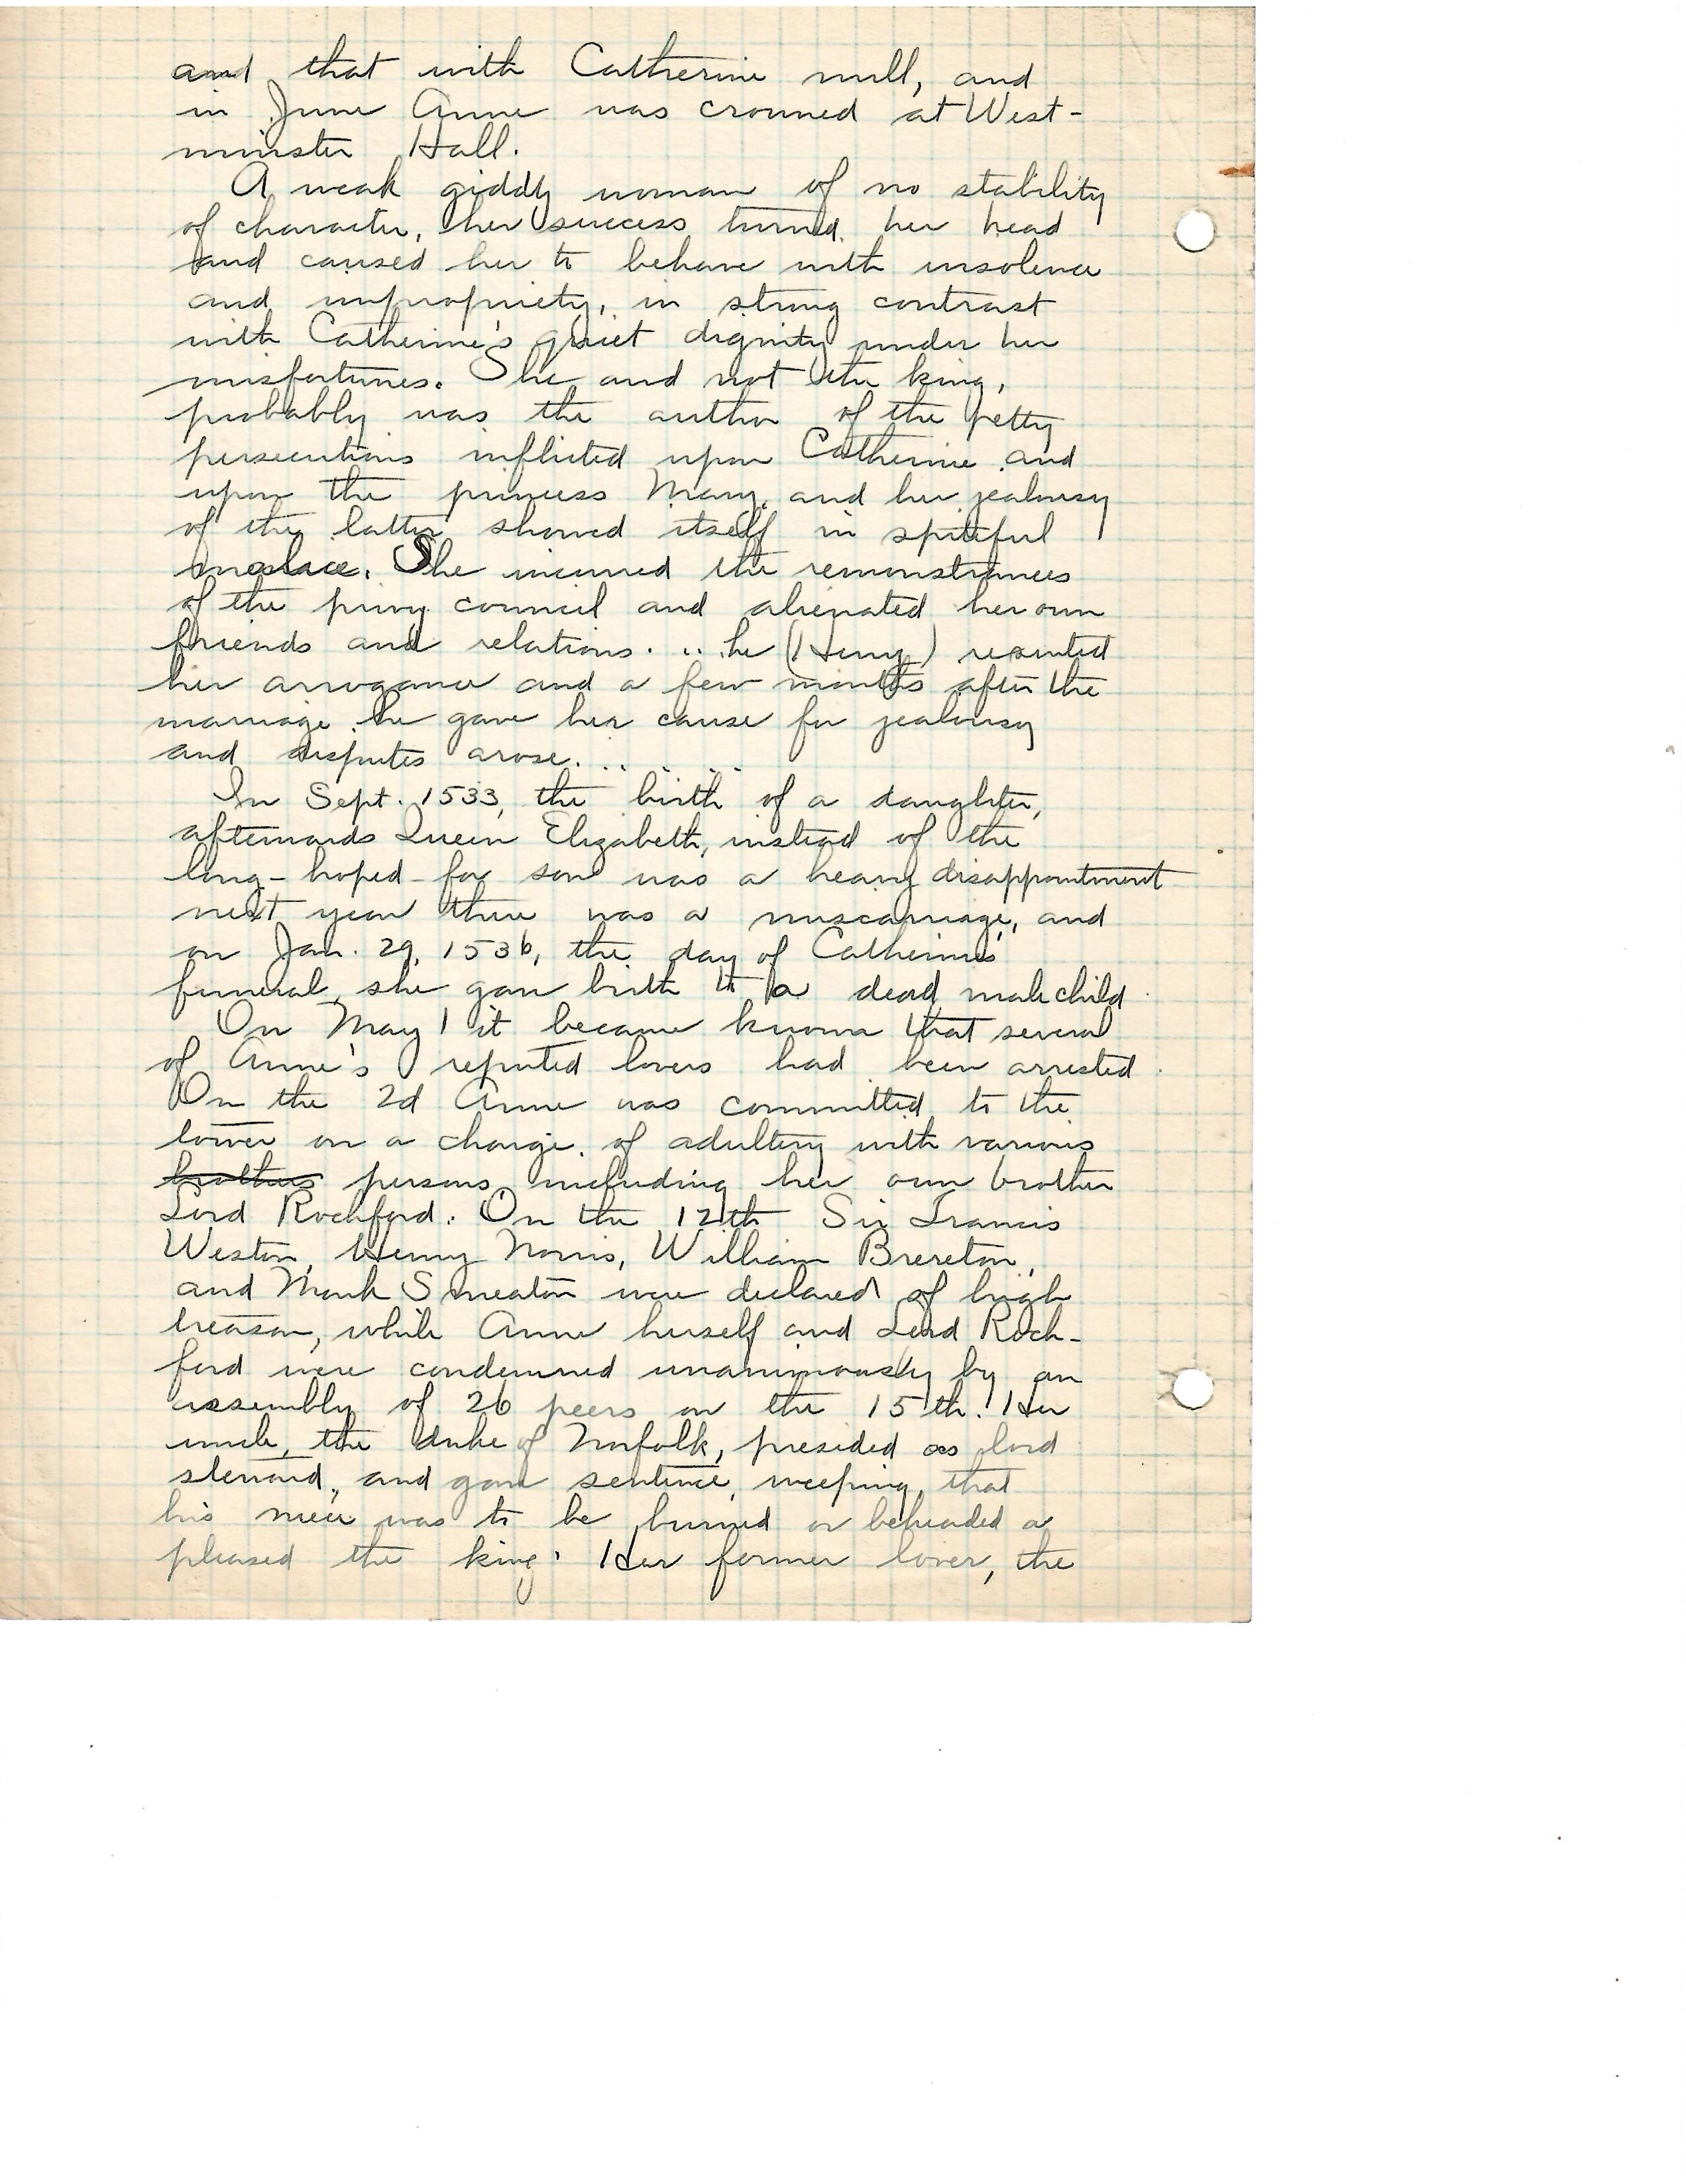 and that with Catherine null, and
in June Anne was crowned at West-
minster Hall.
A weak giddy woman of no stability
of character, her success turned her head
and caused her to behave with insolence
and impropriety, in strong contrast
with Catherine's quiet dignity under her
misfortunes. She and not the king,
probably was the author of the petty
persecutions inflicted upon Catherine and
upon the princess Mary, and her jealousy
of the latter showed itself in spiteful
malice. She incurred the remonstrances
of the privy council and alienated her own
friends and relations. .. he (Henry) resented
her arrogance and a few months after the
marriage he gave her cause for jealousy
and disputes arose. . . . . .
In Sept. 1533, the birth of a daughter,
afterwards Queen Elizabeth, instead of the
long-hoped-for son was a heavy disappointment
next year there was a miscarriage, and
on Jan. 29, 1536, the day of Catherine's
funeral, she gave birth to a dead male child.
On May 1 it became known that several
of Anne's reputed lovers had been arrested.
On the 2d Anne was committed to the
tower on a charge of adultery with various
brothers persons including her own brother
Lord Rochford. On the 12th Sir Francis
Weston, Henry Norris, William Brereton,
and Mark Smeaton were declared of high
treason, while Anne herself and Lord Roch-
ford were condemned unanimously by an
assembly of 26 peers on the 15th. Her
uncle, the duke of Norfolk, presided as lord
steward, and gave sentence, weeping, that
his niece was to be burned or beheaded a
pleased the king. Her former lover, the